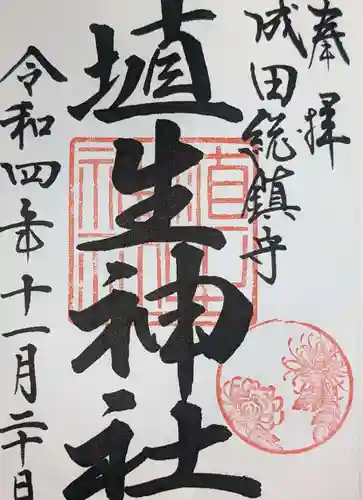 奉拝
成田総鎮守
埴生神社
令和四年十一月二十日